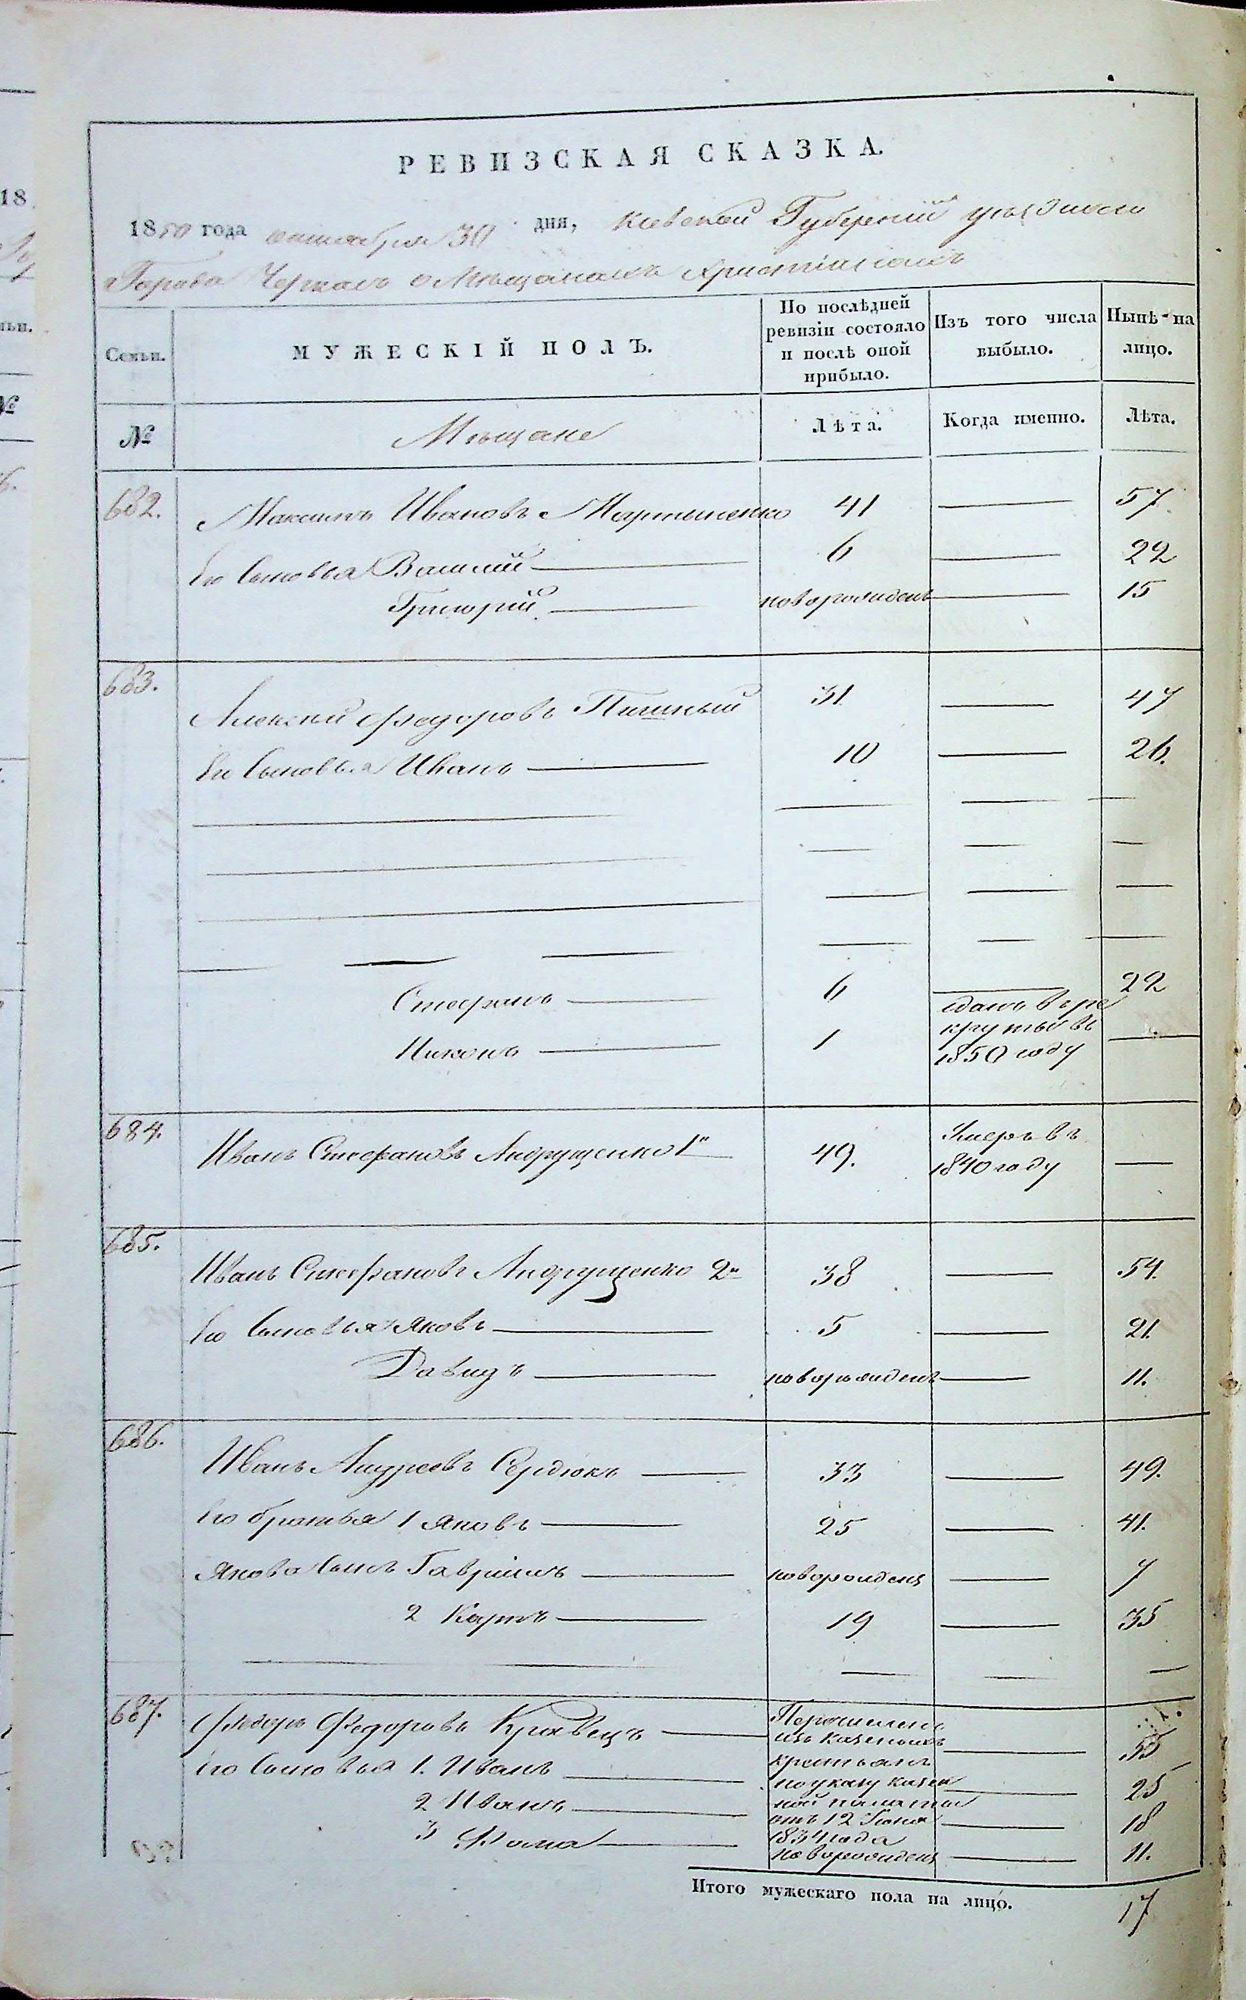 РЕВИЗСКАЯ СКАЗКА.
1850 года октября 30 дня, Киевской Губерніи уѣзднаго
Города Черкасъ о Мѣщанахъ Христіянахъ
Семьи.
МУЖЕСКІЙ ПОЛЪ.
По послѣдней ревизіи состояло и послѣ оной прибыло.
Изъ того числа выбыло.
Нынѣ на лицо.
№
Мѣщане
Лѣта.
Когда именно.
Лѣта.
682. Максимъ Ивановъ Мартыненко 41 57.
Его Сыновья Василій 6 22
Григорій новорожденъ 15
683. Алексѣй Федоровъ Пишный 31 47
Его Сыновья Иванъ 10 26.
Стефанъ 6 22
Никонъ 1 сданъ въ рекруты въ 1850 году
684. Иванъ Стефановъ Андрущенко 1й 49. Умеръ въ 1840 году
685. Иванъ Стефановъ Андрущенко 2й 38 54.
Его Сыновья Яковъ 5 21.
Давидъ новорожденъ 11.
686. Иванъ Андреевъ Сердюкъ 33 49.
Его братья 1 Яковъ 25 41.
Якова Сынъ Гавріилъ новорожденъ 7
2 Карпъ 19 35
687. Федоръ Федоровъ Кравецъ 55
Его Сыновья 1. Иванъ 25
2 Иванъ 18
3 Фома новорожденъ 11.
Перечисленъ
изъ казенныхъ
крестьянъ
по указу казен
ной палаты
отъ 12 Іюня
1834 года
Итого мужескаго пола на лицо. 17